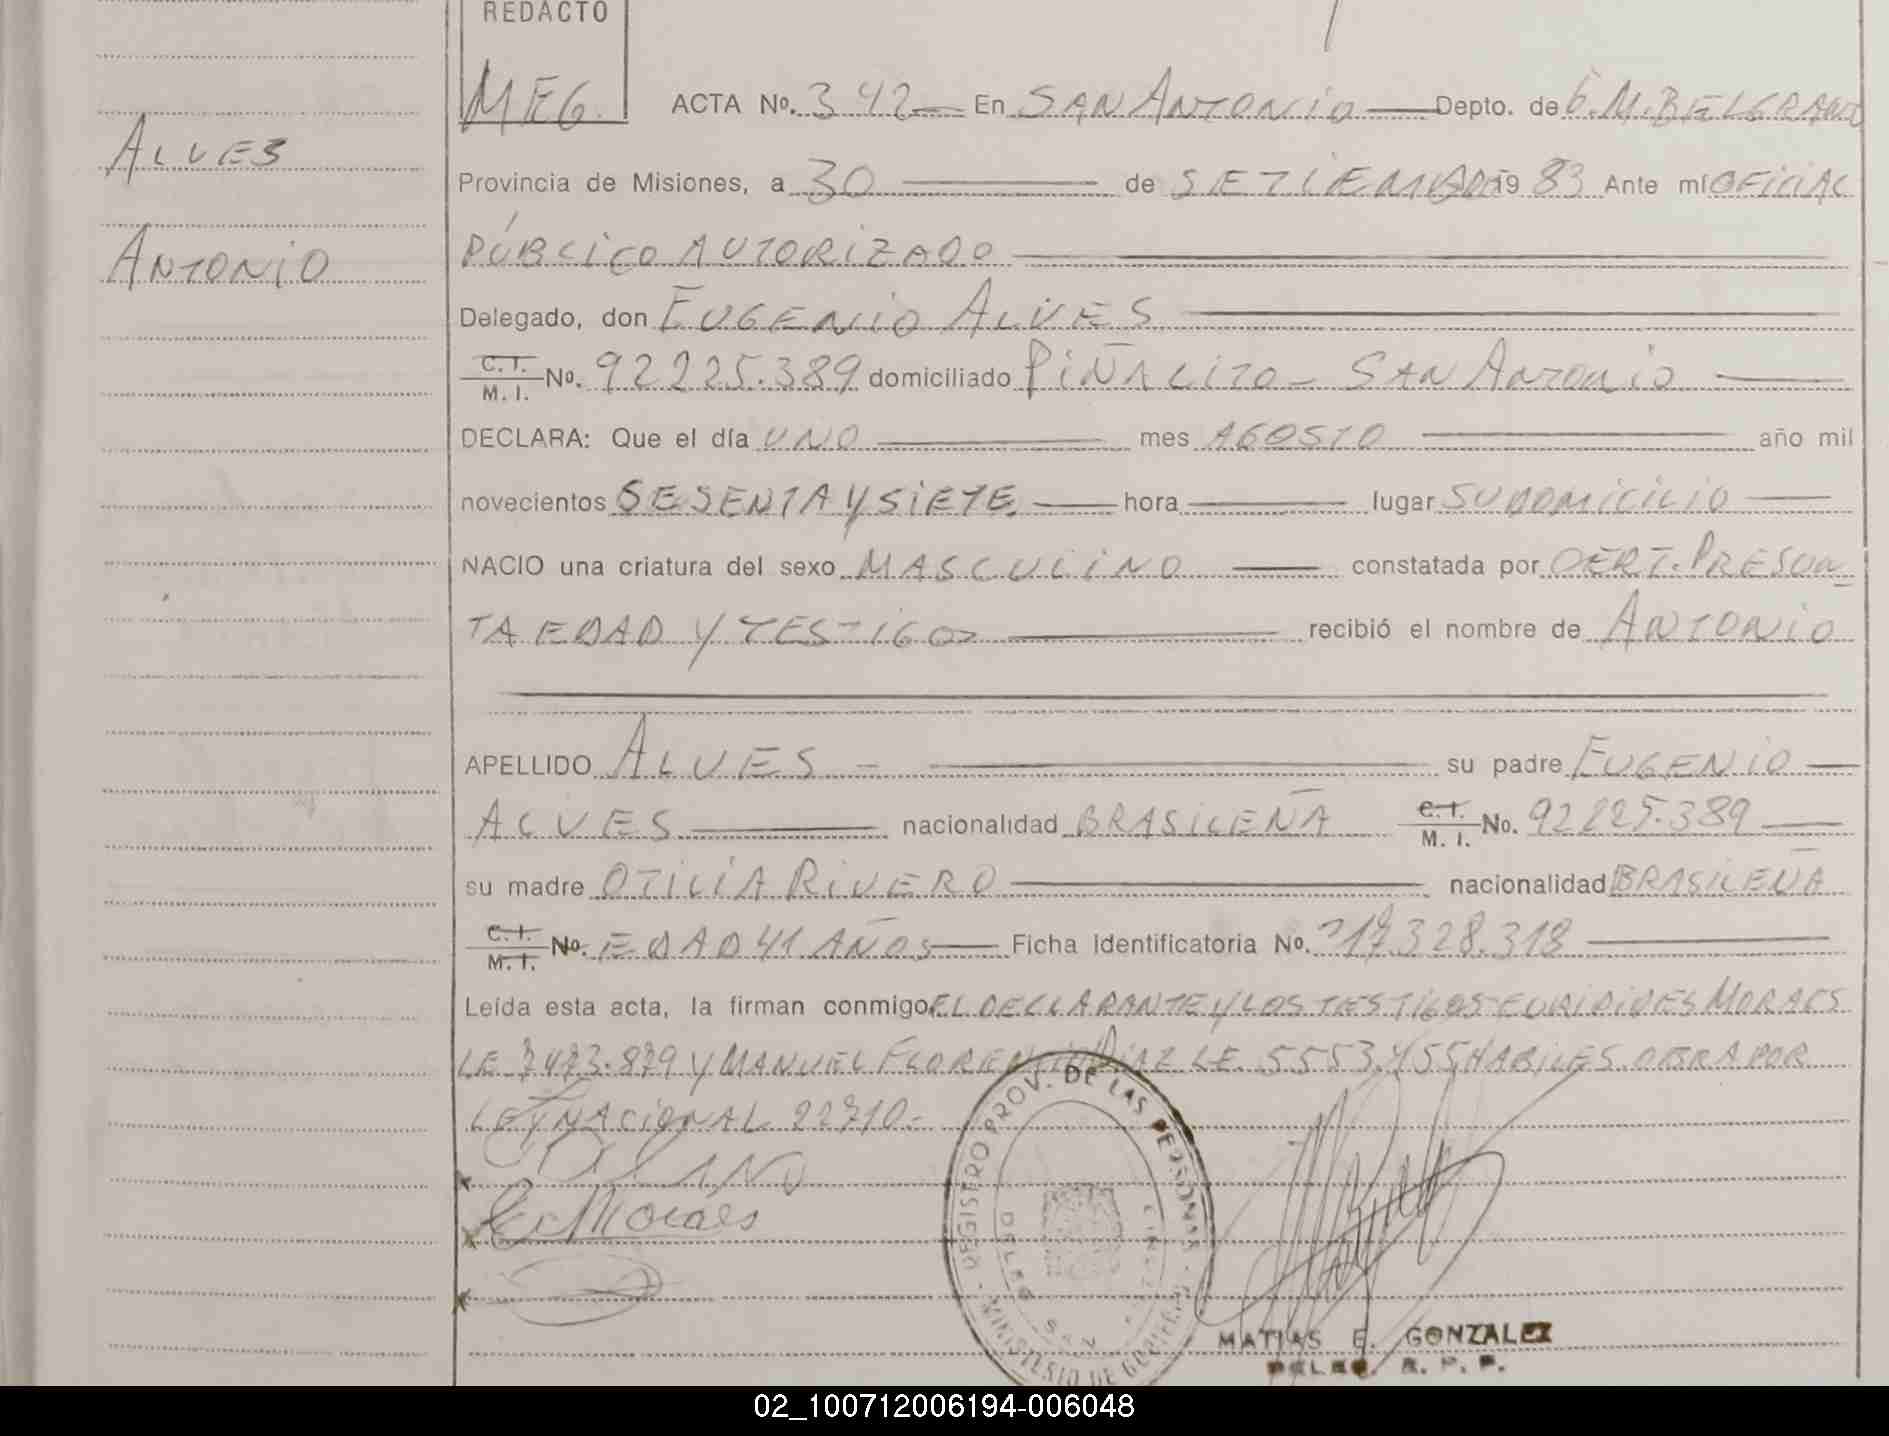 REDACTO
MEG.
ALVES
ANTONIO
ACTA No. 342 En SAN ANTONIO Depto. de G. M. BELGRANO
Provincia de Misiones, a 30 de SETIEMBRE 19 83 Ante mí OFICIAL
PÚBLICO AUTORIZADO
Delegado, don EUGENIO ALVES
C. I. M. I. No. 92225.389 domiciliado PIÑALITO - SAN ANTONIO
DECLARA: Que el día UNO mes AGOSTO año mil
novecientos SESENTA Y SIETE hora lugar SU DOMICILIO
NACIO una criatura del sexo MASCULINO constatada por CERT. PRESUN
TA EDAD Y TESTIGOS recibió el nombre de ANTONIO
APELLIDO ALVES - su padre EUGENIO
ALVES nacionalidad BRASILEÑA C. I. M. I. No. 92225.389
su madre OTILIA RIVERO nacionalidad BRASILEÑA
C. I. M. I. No. EDAD 41 AÑOS Ficha Identificatoria No. 328.318
Leída esta acta, la firman conmigo EL DECLARANTE Y LOS TESTIGOS EURIDIDES MORAES
LE 7473.879 Y MANUEL FLORENTIN DIAZ LE. 5553.455 HABILES. OBRA POR
LEY NACIONAL 22710.-
E. Moraes
REGISTRO PROV. DE LAS PERSONAS
MINISTERIO DE GOBIERNO
DELEG. SAN
MATIAS E. GONZALEZ
DELEG. R. P. P.
02_100712006194-006048